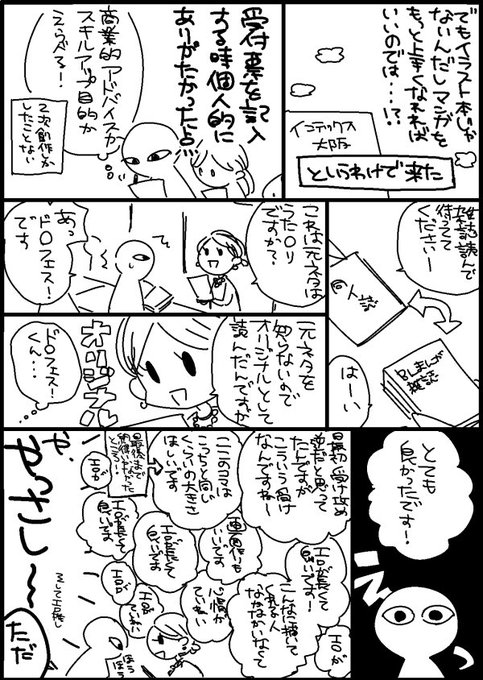 でもイラスト本じゃ
ないんだしマンガを
もっと上手くなれれば
いいのでは……!?
インテックス
大阪
というわけで来た
受付票を記入
する時個人的に
ありがたかった点…
商業的アドバイスか
スキルアップ目的か
えらべる!
2次創作しか
したことない
雑誌読んで
待ってて
くださいー
同人誌
BLまんが
雑誌
はーい
これは元ネタは
うた○リ
ですか?
あっ
ド○フェス!
です
元ネタを
知らないので
オリジナルとして
読んだんですが
オリジナル
ド○フェス!
くん…
とても
良かったです!
最初受け攻め
逆だと思って
たんですが
こういう受け
なんですねー
ここのコマは
こっちと同じ
くらいの大きさ
ほしいです
エロが長くて
良いです!
こんなに描いて
くれる人
なかなかいなくて
エロが
画面作りも
いいです
エロも長くて
良いです
心情が
ていねい
エロが
ていねい
エロが
エロも長くて
良いです
や、
やっさし〜〜
ただ
ほう
ほう